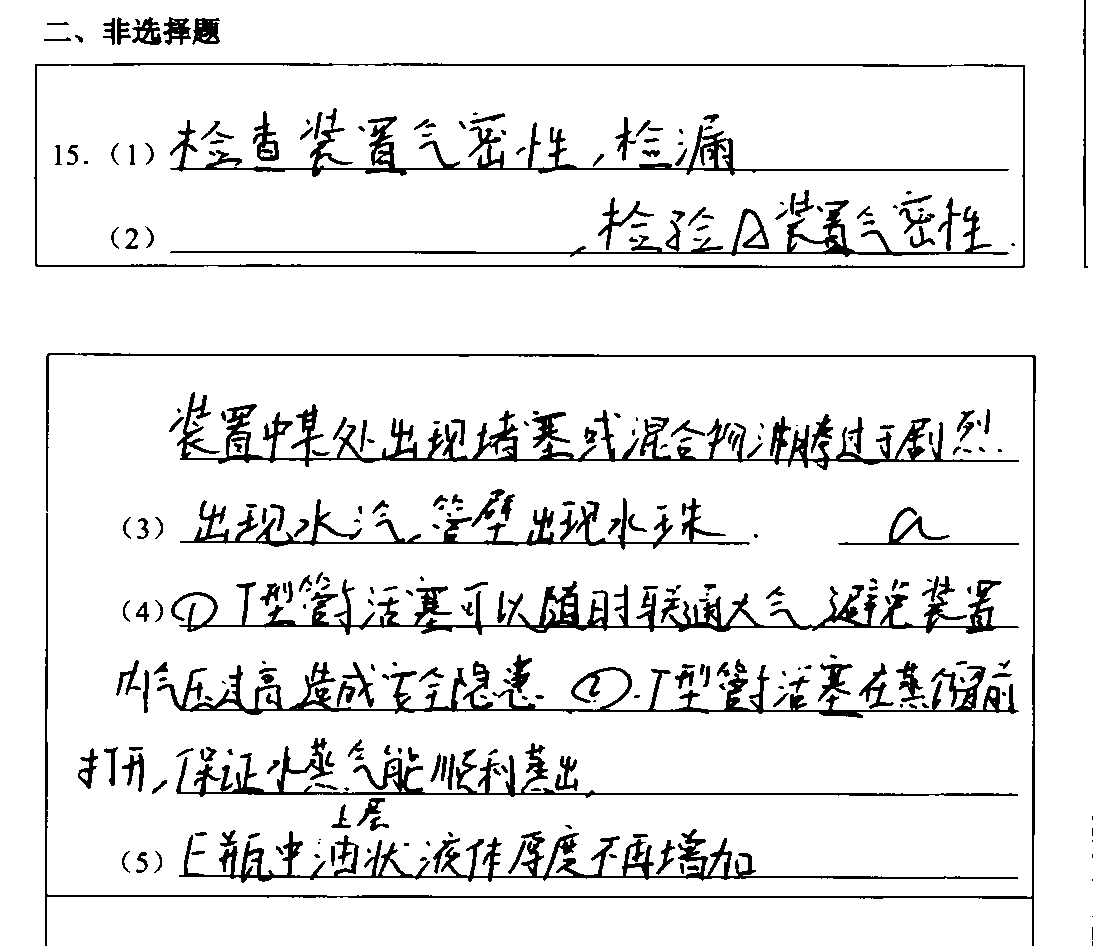 二、非选择题
15.（1）检查装置气密性，检漏
（2） ，检验A装置气密性.
装置中某处出现堵塞或混合物沸腾过于剧烈.
（3）出现水汽，管壁出现水珠. a
（4）①T型管与活塞可以随时联通大气，避免装置
内气压过高造成安全隐患.②.T型管与活塞在蒸馏前
打开，保证水蒸气能顺利蒸出.
上层
（5）E瓶中油状液体厚度不再增加